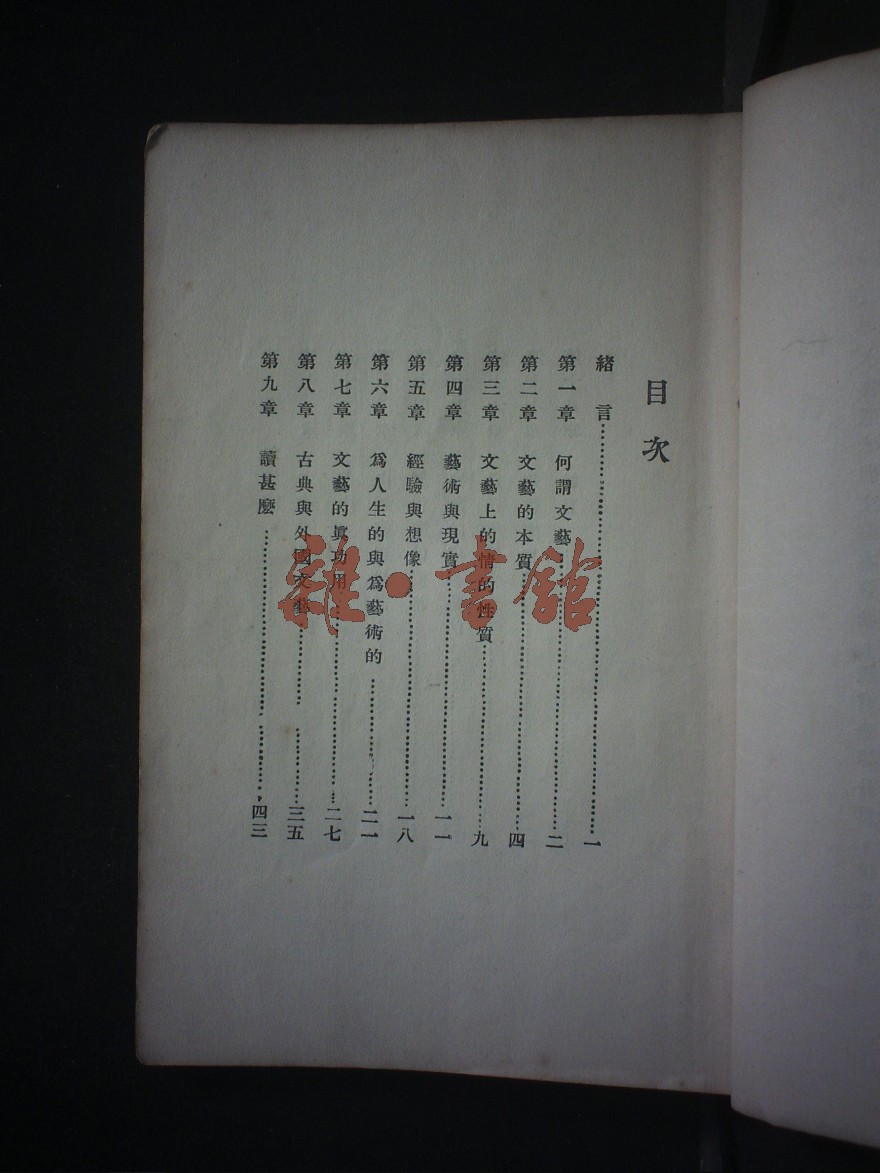 目次
緒言……一
第一章 何謂文藝……二
第二章 文藝的本質……四
第三章 文藝上的情的性質……九
第四章 藝術與現實……一一
第五章 經驗與想像……一八
第六章 爲人生的與爲藝術的……二一
第七章 文藝的眞功用……二七
第八章 古典與外國文藝……三五
第九章 讀甚麽……四三
雜·書館